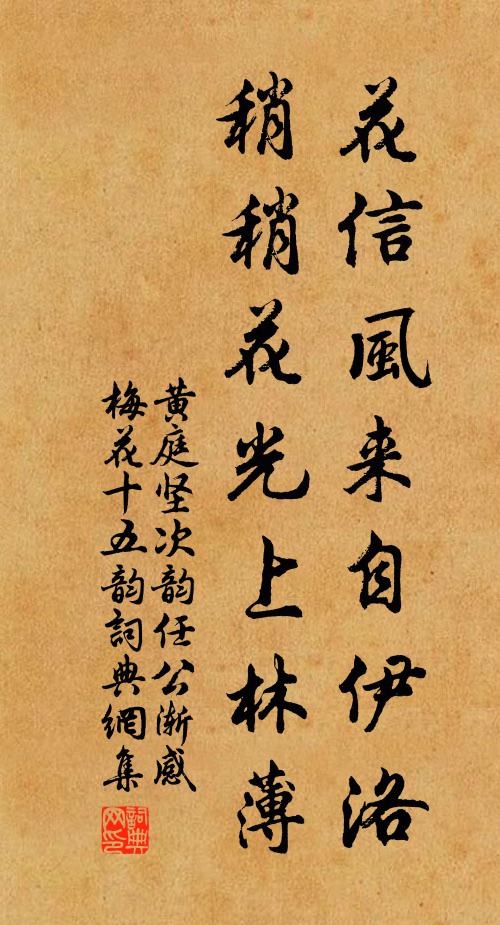 花信風来自伊洛
稍稍花光上林薄
黄庭坚次韵任公渐感
梅花十五韵詞典網集
詞典网印